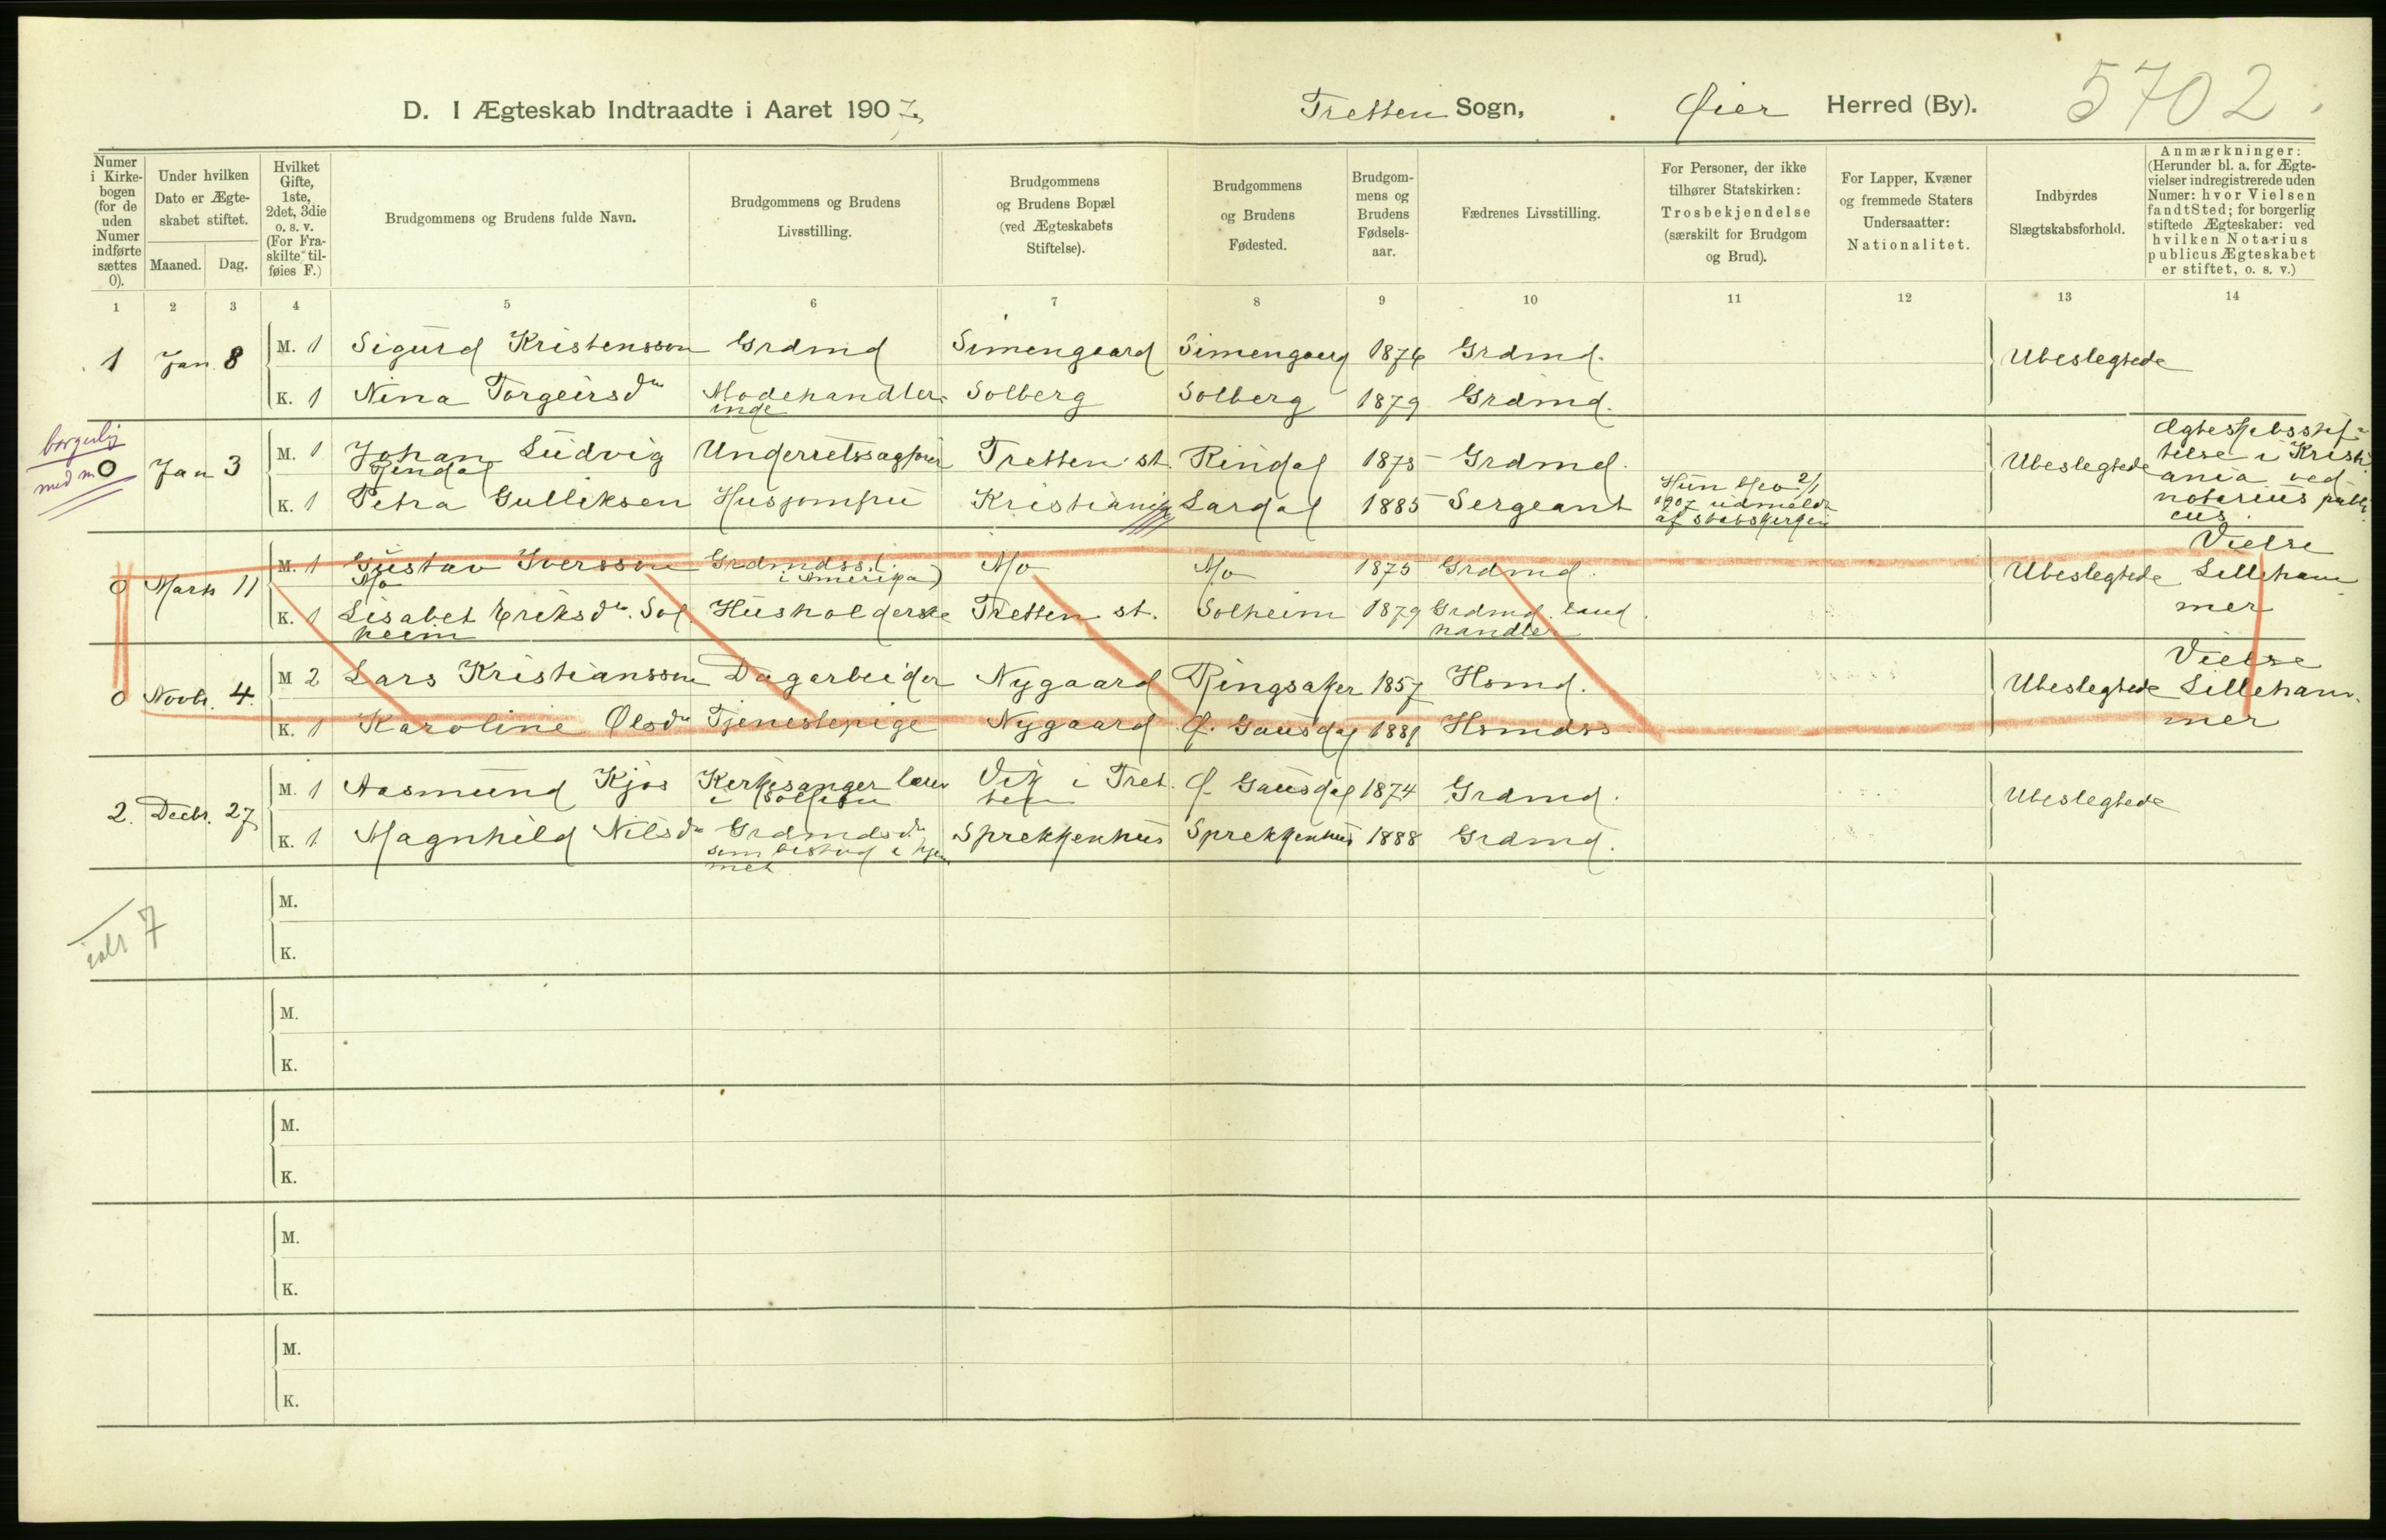 5702.
D. I Ægteskab Indtraadte i Aaret 1907. Tretten Sogn, Øier Herred (By).
Numer i Kirkebogen (for de uden Numer indførte sættes 0).
Under hvilken Dato er Ægteskabet stiftet.
Maaned. Dag.
Hvilket Gifte, 1ste, 2det, 3die o. s. v. (For Fraskilte tilføies F.)
Brudgommens og Brudens fulde Navn.
Brudgommens og Brudens Livsstilling.
Brudgommens og Brudens Bopæl (ved Ægteskabets Stiftelse).
Brudgommens og Brudens Fødested.
Brudgommens og Brudens Fødselsaar.
Fædrenes Livsstilling.
For Personer, der ikke tilhører Statskirken: Trosbekjendelse (særskilt for Brudgom og Brud).
For Lapper, Kvæner og fremmede Staters Undersaatter: Nationalitet.
Indbyrdes Slægtskabsforhold.
Anmærkninger: (Herunder bl. a. for Ægtevielser indregistrerede uden Numer: hvor Vielsen fandt Sted; for borgerlig stiftede Ægteskaber: ved hvilken Notarius publicus Ægteskabet er stiftet, o. s. v.)
1 2 3 4 5 6 7 8 9 10 11 12 13 14
1 Jan 8 M. 1 Sigurd Kristensson Grdmd Simengaard Simengaard 1876 Grdmd. Ubeslegtede
K. 1 Nina Torgeirsdtr Modehandlerinde Solberg Solberg 1879 Grdmd.
borgerlig
med m
0 Jan 3 M. 1 Johan Ludvig Rindal Underretssagfører Tretten st. Rindal 1875 Grdmd. Ubeslegtede Ægteskabsstiftelse i Kristiania ved notarius publicus
K. 1 Petra Gulliksen Husjomfru Kristiania Lardal 1885 Sergeant Hun blev 2/1 1907 udmeldt af statskirken
0 Marts 11 M. 1 Gustav Iversson Mo Grdmdss. (i Amerika) Mo Mo 1875 Grdmd. Ubeslegtede Vielse Lillehammer
K. 1 Lisabet Eriksdtr. Solheim Husholderske Tretten st. Solheim 1879 Grdmd. landhandler
0 Novbr. 4. M 2 Lars Kristiansson Dagarbeider Nygaard Ringsaker 1857 Hsmd. Ubeslegtede Vielse Lillehammer
K. 1 Karoline Olsdtr Tjenestepige Nygaard Ø. Gausdal 1881 Hsmdss
2. Decbr. 27 M. 1 Aasmund Kjos Kirkesanger lærer i Vik i Tretten Ø. Gausdal 1874 Grdmd. Ubeslegtede
K. 1 Magnhild Nilsdtr Grdmdsdtr som bistod i hjemmet Sprekkenhus Sprekkenhus 1888 Grdmd.
ialt 7
M.
K.
M.
K.
M.
K.
M.
K.
M.
K.